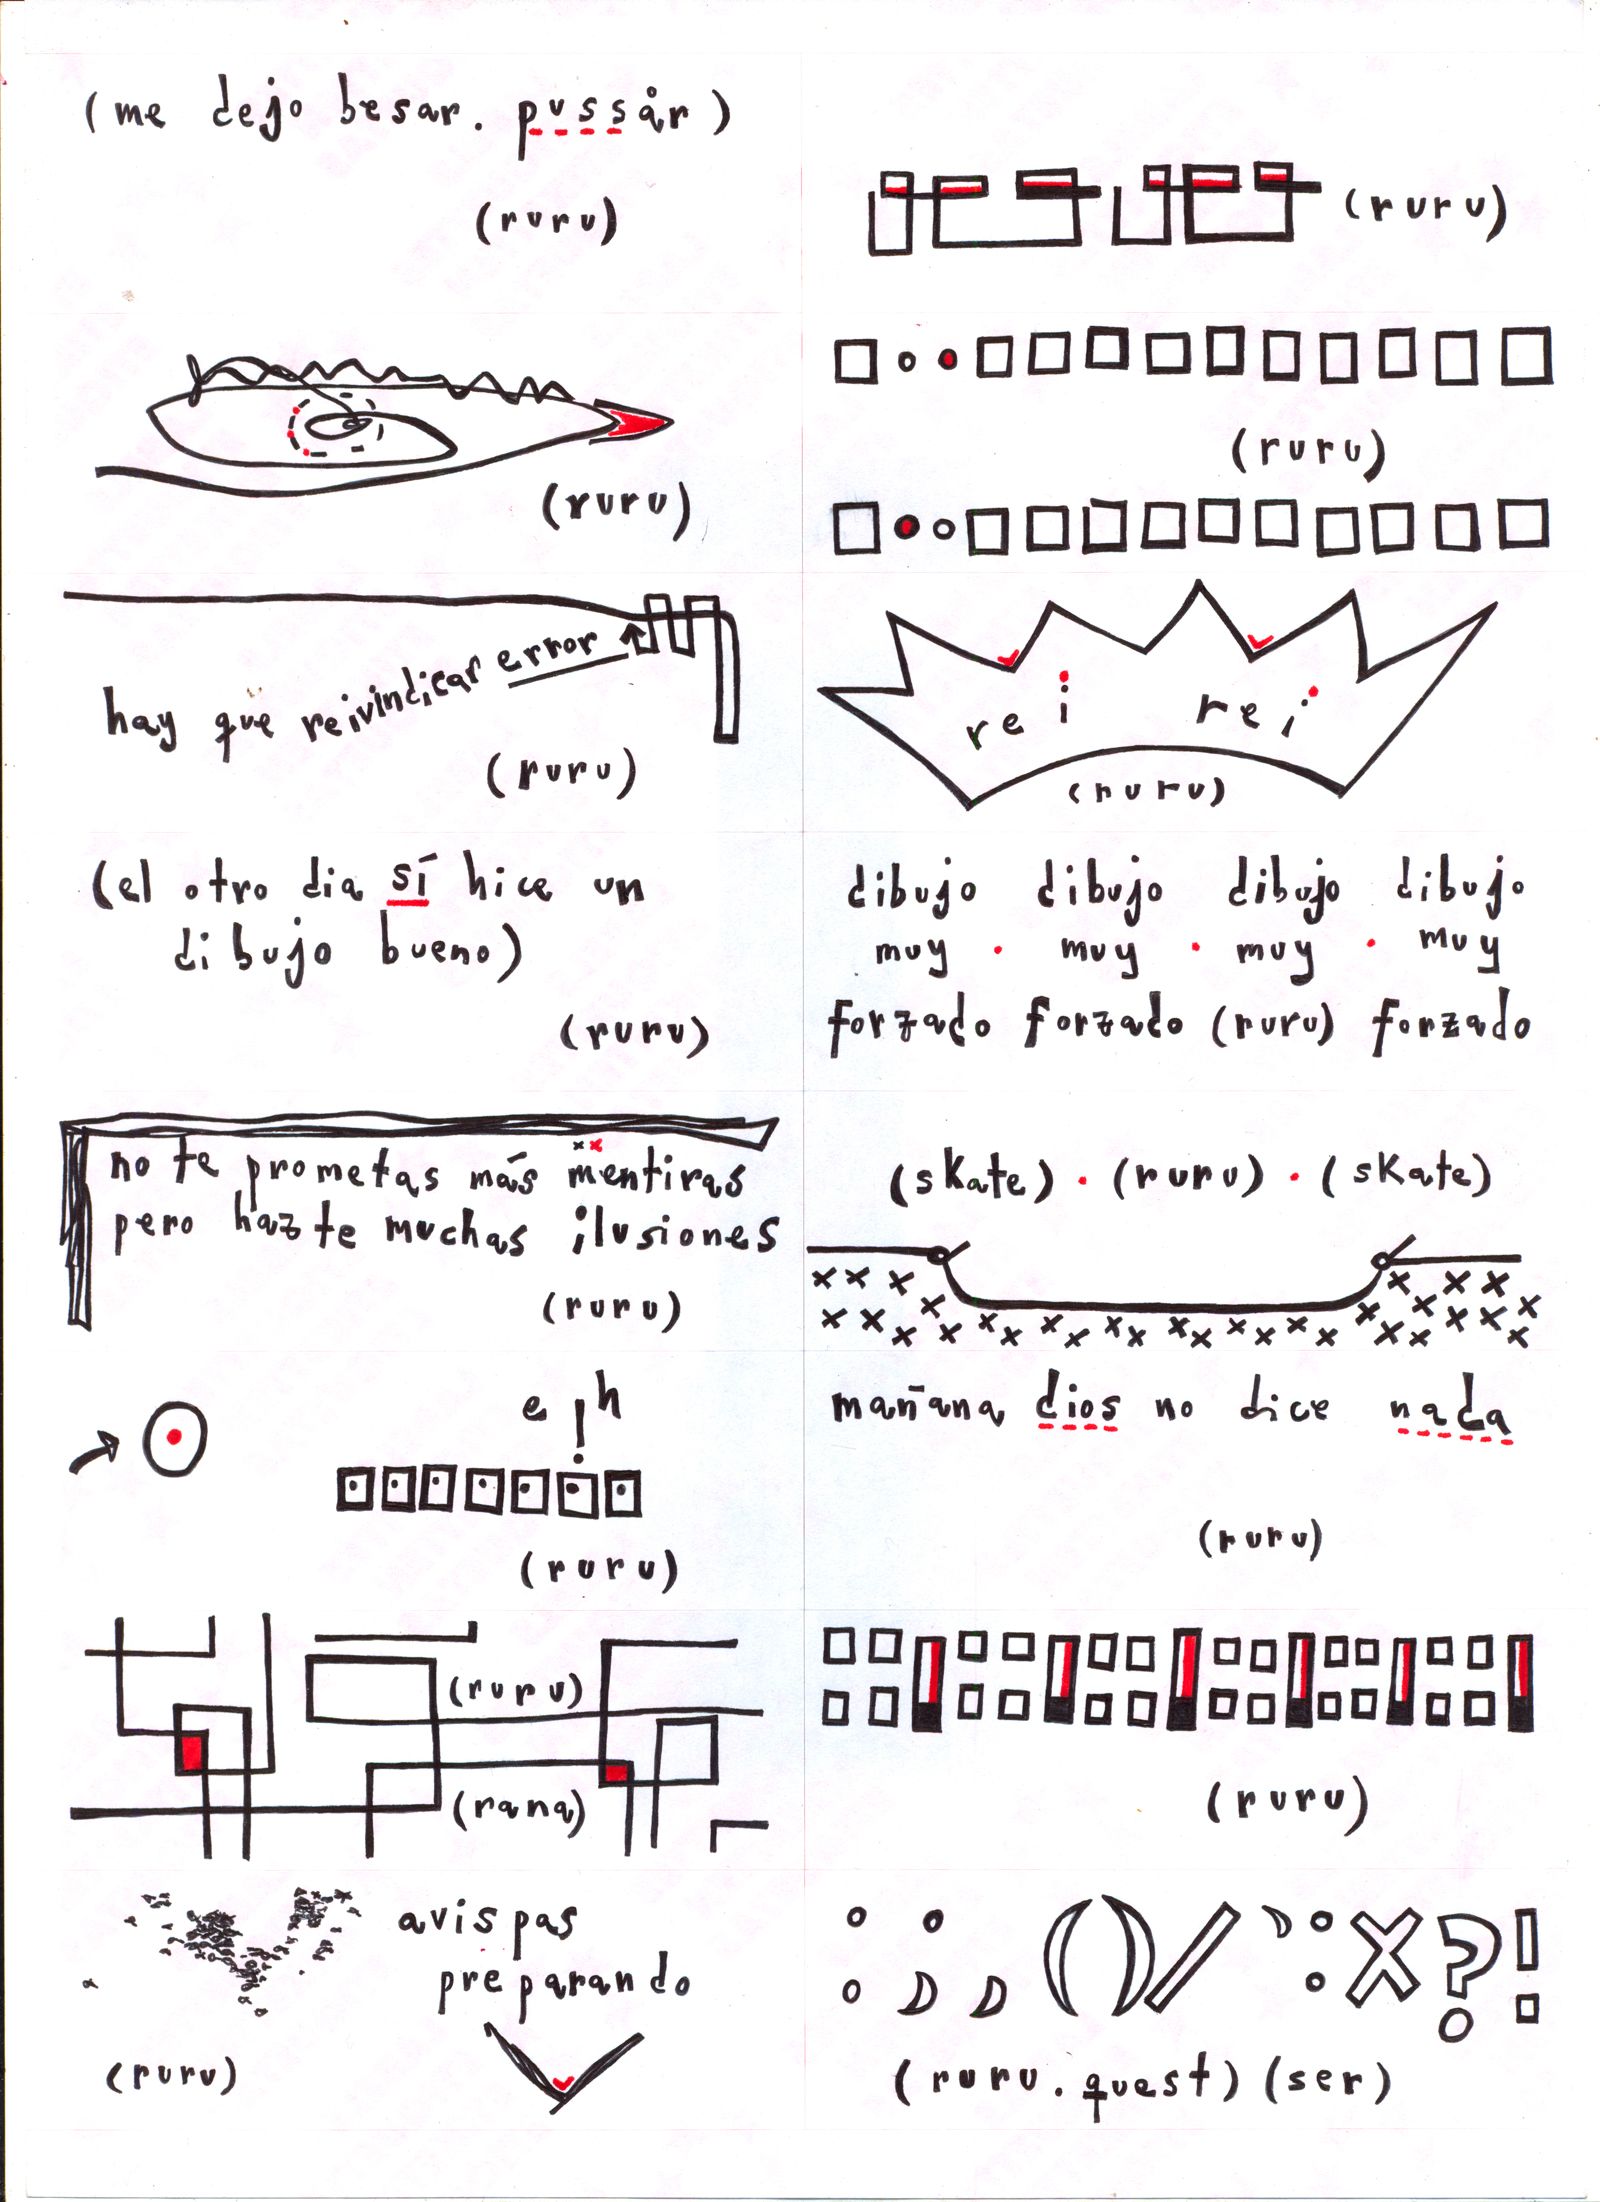 (me dejo besar. pussår)
(ruru)
(ruru)
(ruru)
(ruru)
hay que reivindicar error
(ruru)
rei rei
(ruru)
(el otro dia sí hice un
dibujo bueno)
(ruru)
dibujo dibujo dibujo dibujo
muy · muy · muy · muy
forzado forzado (ruru) forzado
no te prometas más mentiras
pero hazte muchas ilusiones
(ruru)
(skate) · (ruru) · (skate)
e ! h
(ruru)
mañana dios no dice nada
(ruru)
(ruru)
(rana)
(ruru)
avispas
preparando
(ruru)
(ruru.quest) (ser)